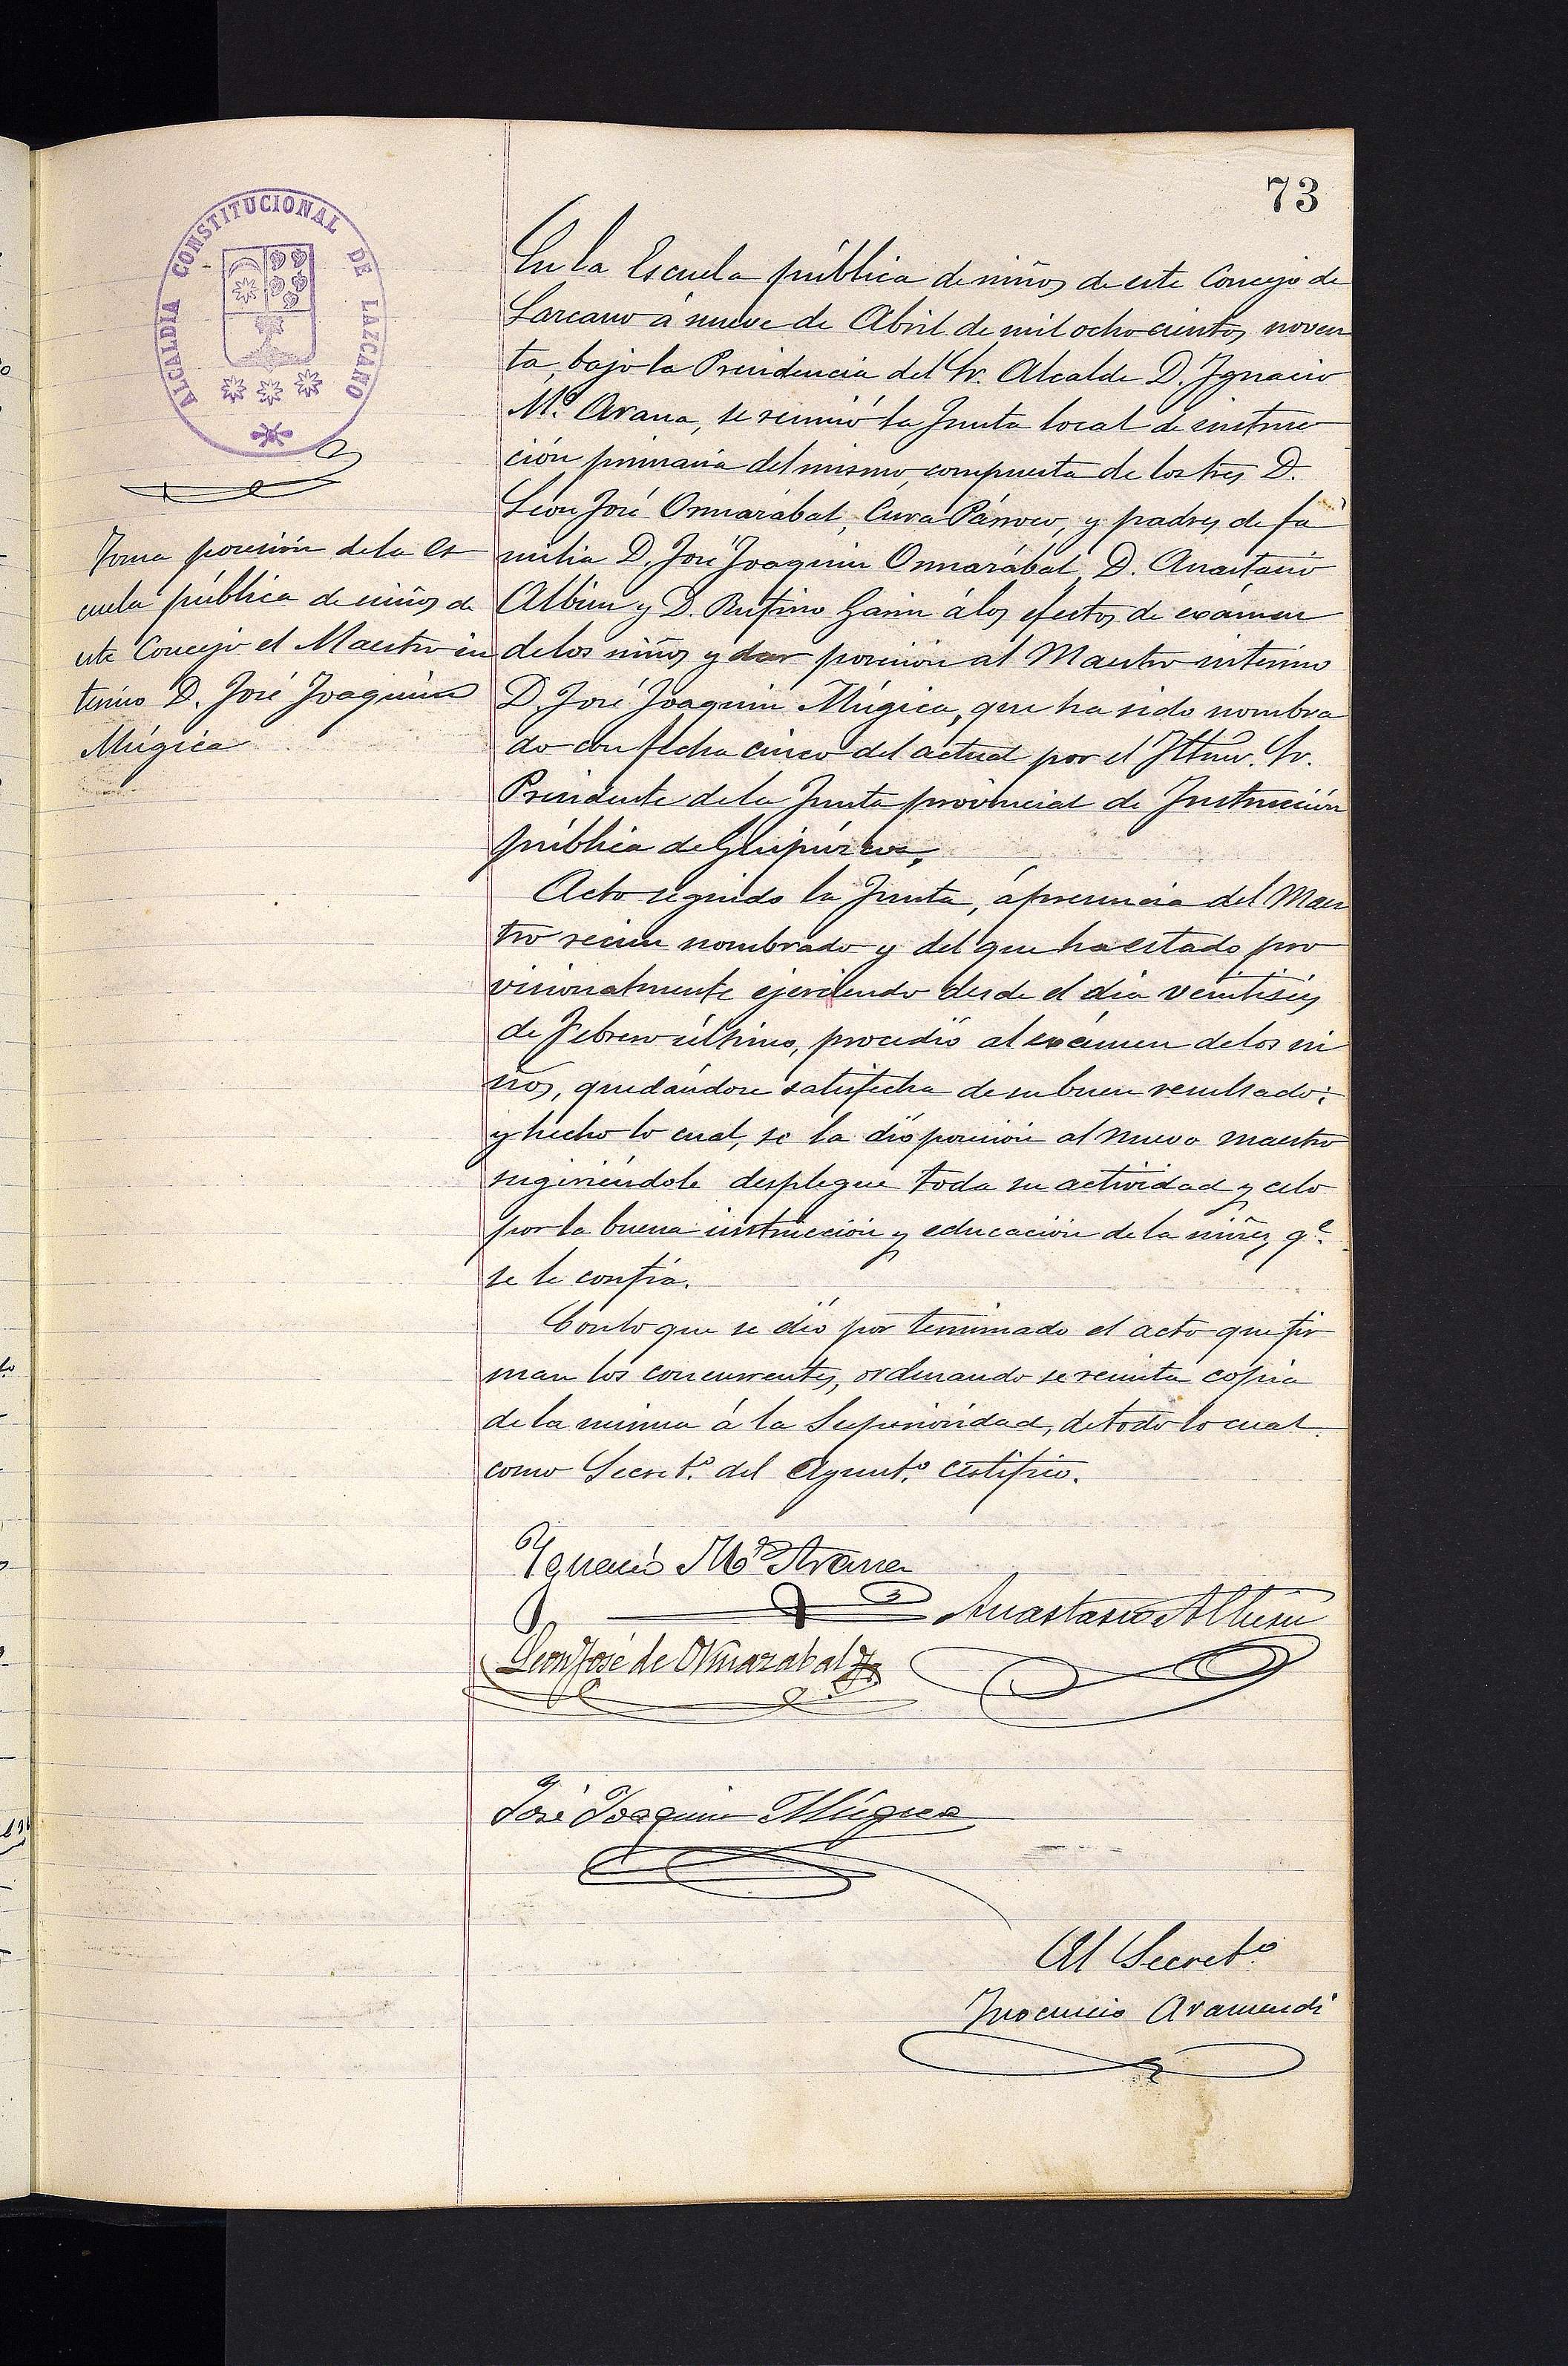 73
ALCALDIA CONSTITUCIONAL DE LAZCANO
Toma posesión de la es
cuela pública de niños de
este Concejo el Maestro in
terino D. José Joaquin
Múgica
En la Escuela pública de niños de este Concejo de
Lazcano á nueve de Abril de mil ochocientos noven
ta, bajo la Presidencia del Sr. Alcalde D. Ignacio
Mª Arana, se reunió la Junta local de instruc
ción primaria del mismo, compuesta de los tres D.
Leon José Ormazábal, Cura Párroco, y padres de fa
milia D. José Joaquin Ormazábal, D. Anastasio
Albisu y D. Rufino Garin á los efectos de exámen
de los niños y dar posesión al Maestro interino
D. José Joaquin Múgica, que ha sido nombra
do con fecha cinco del actual por el Iltmo. Sr.
Presidente de la Junta provincial de Instrucción
pública de Guipúzcoa.
Acto seguido la Junta, á presencia del Maes
tro recien nombrado y del que ha estado pro
visionalmente ejerciendo desde el dia veintiseis
de Febrero último, procedió al exámen de los ni
ños, quedándose satisfecha de su buen resultado;
y hecho lo cual, se la dió posesión al nuevo maestro
sugiriéndole despliegue toda su actividad y celo
por la buena instrucción y educación de la niñez qe.
se le confia.
Con lo que se dió por terminado el acto que fir
man los concurrentes, ordenando se remita copia
de la misma á la Superioridad, de todo lo cual
como Secretº. del Ayuntº. certifico.
Ignacio Mª Arana
Anastasio Albisu
Leon José de Ormazabal
José Joaquin Múgica
El Secretº
Inocencio Aramendi